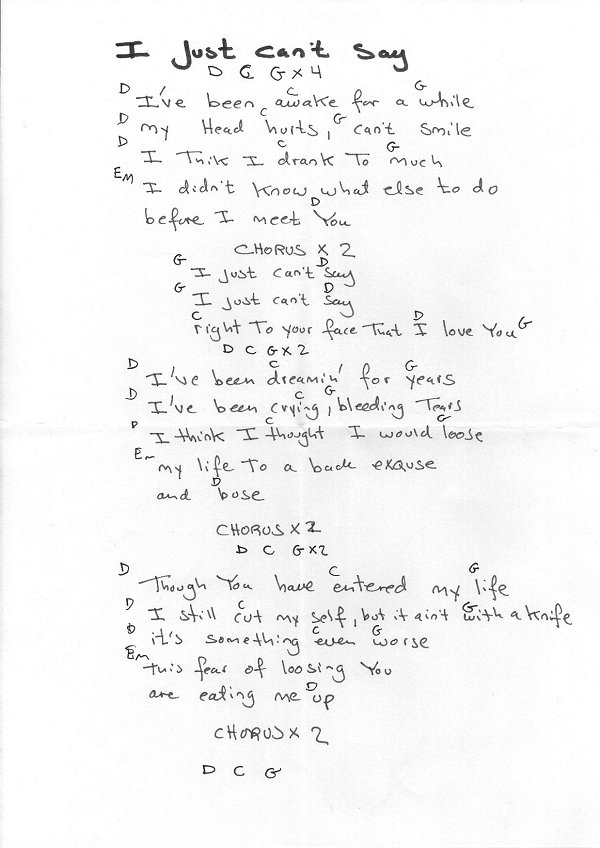 I Just Can't Say
D C G x 4
D C G
I've been awake for a while
D C G
my Head hurts, can't smile
D C G
I Thik I drank To much
Em
I didn't know what else to do
D
before I meet You
CHORUS x 2
G D
I just can't say
G D
I just can't say
C D G
right To your face That I love You
D C G x 2
D C G
I've been dreamin' for years
D C G
I've been crying, bleeding Tears
D C G
I think I thought I would loose
Em
my life To a back exquse
D
and bose
CHORUS x 2
D C G x2
D C G
Though You have entered my life
D C G
I still cut my self, but it ain't with a knife
D C G
it's something even worse
Em
this fear of loosing You
D
are eating me up
CHORUS x 2
D C G